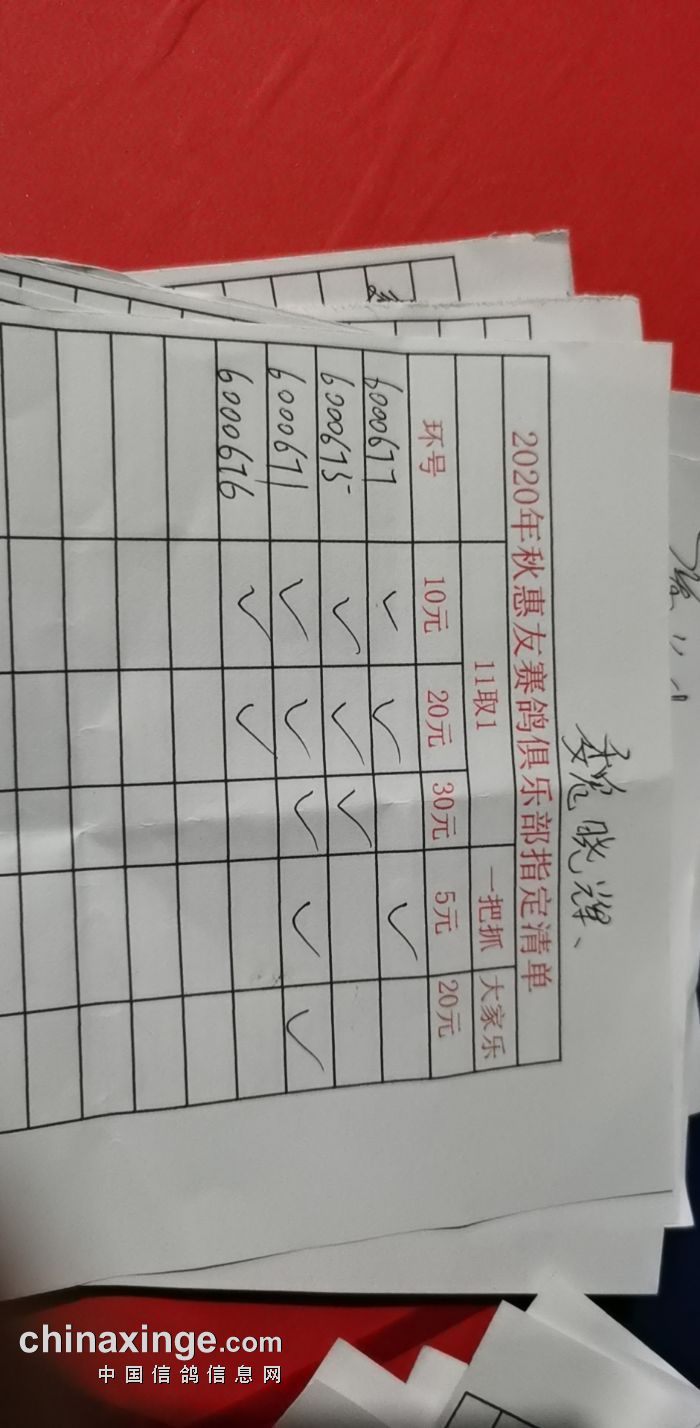 魏晓辉、
2020年秋惠友赛鸽俱乐部指定清单
11取1 一把抓 大家乐
环号 10元 20元 30元 5元 20元
6000677 ✓ ✓ ✓
6000675 ✓ ✓ ✓
6000671 ✓ ✓ ✓ ✓ ✓
6000676 ✓ ✓
chinaxinge.com
中国信鸽信息网